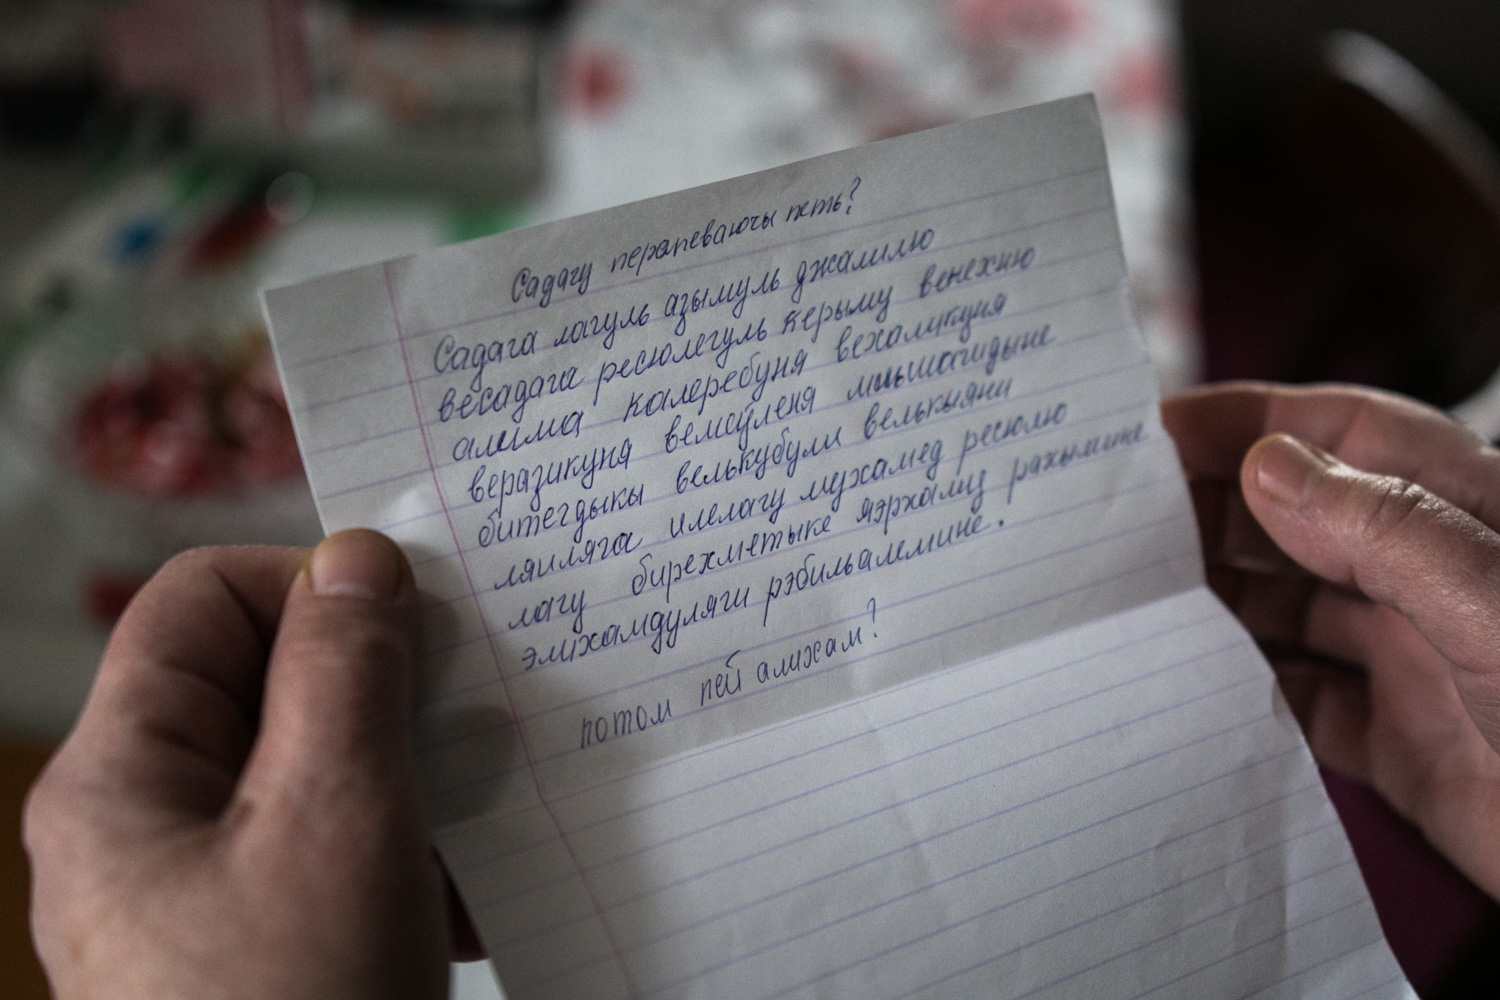 Садагу перапеваючы петь?
Садага лагуль азымуль джалилю
весадага ресюлегуль керыму венехню
алима калеребуня вехаликуня
веразикуня вемсуленя мишшагидыне
битегдыкы велькубули велькыяни
ляиляга илелагу мухамед ресюлю
лагу бирехметыке яэрхаму рахымине
элихамдуляги рэбильалемине.
потом пей алихам?